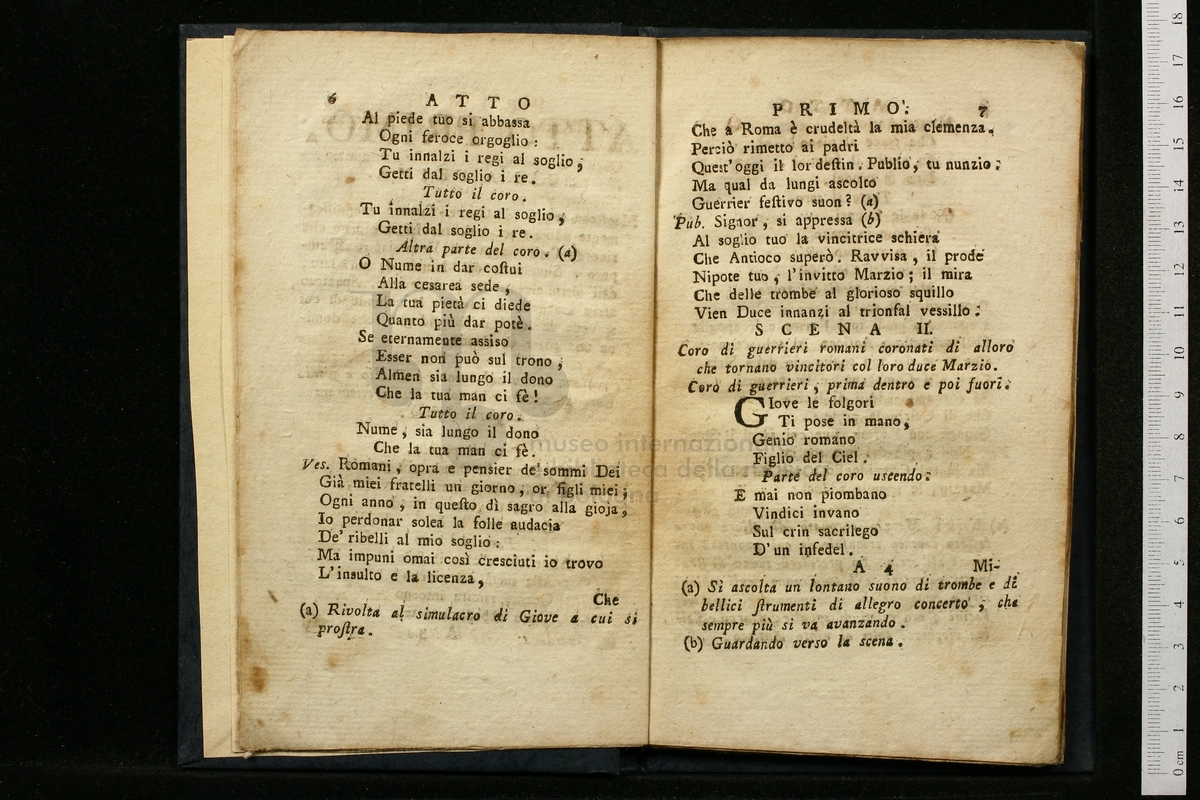 6 ATTO
Al piede tuo si abbassa
Ogni feroce orgoglio:
Tu innalzi i regi al soglio,
Getti dal soglio i re.
Tutto il coro.
Tu innalzi i regi al soglio,
Getti dal soglio i re.
Altra parte del coro. (a)
O Nume in dar coſtui
Alla cesarea sede,
La tua pietà ci diede
Quanto più dar potè.
Se eternamente assiso
Esser non può sul trono,
Almen sia lungo il dono
Che la tua man ci fè!
Tutto il coro.
Nume, sia lungo il dono
Che la tua man ci fè.
Ves. Romani, opra e pensier de' sommi Dei
Già miei fratelli un giorno, or figli miei;
Ogni anno, in queſto dì sagro alla gioja,
Io perdonar solea la folle audacia
De' ribelli al mio soglio:
Ma impuni omai così cresciuti io trovo
L'insulto e la licenza,
Che
(a) Rivolta al simulacro di Giove a cui si
proſtra.
PRIMO. 7
Che a Roma è crudeltà la mia clemenza.
Perciò rimetto ai padri
Quest' oggi il lor deſtin. Publio, tu nunzio:
Ma qual da lungi ascolto
Guerrier feſtivo suon? (a)
Pub. Signor, si appressa (b)
Al soglio tuo la vincitrice schiera
Che Antioco superò. Ravvisa, il prode
Nipote tuo, l'invitto Marzio; il mira
Che delle trombe al glorioso squillo
Vien Duce innanzi al trionfal vessillo.
SCENA II.
Coro di guerrieri romani coronati di alloro
che tornano vincitori col loro duce Marzio.
Coro di guerrieri, prima dentro e poi fuori.
GIove le folgori
Ti pose in mano,
Genio romano
Figlio del Ciel.
Parte del coro uscendo.
E mai non piombano
Vindici invano
Sul crin sacrilego
D'un infedel.
A 4 Mi-
(a) Si ascolta un lontano suono di trombe e di
bellici ſtrumenti di allegro concerto, che
sempre più si va avanzando.
(b) Guardando verso la scena.
museo internazionale
biblioteca della musica
bologna
0 cm 1 2 3 4 5 6 7 8 9 10 11 12 13 14 15 16 17 18